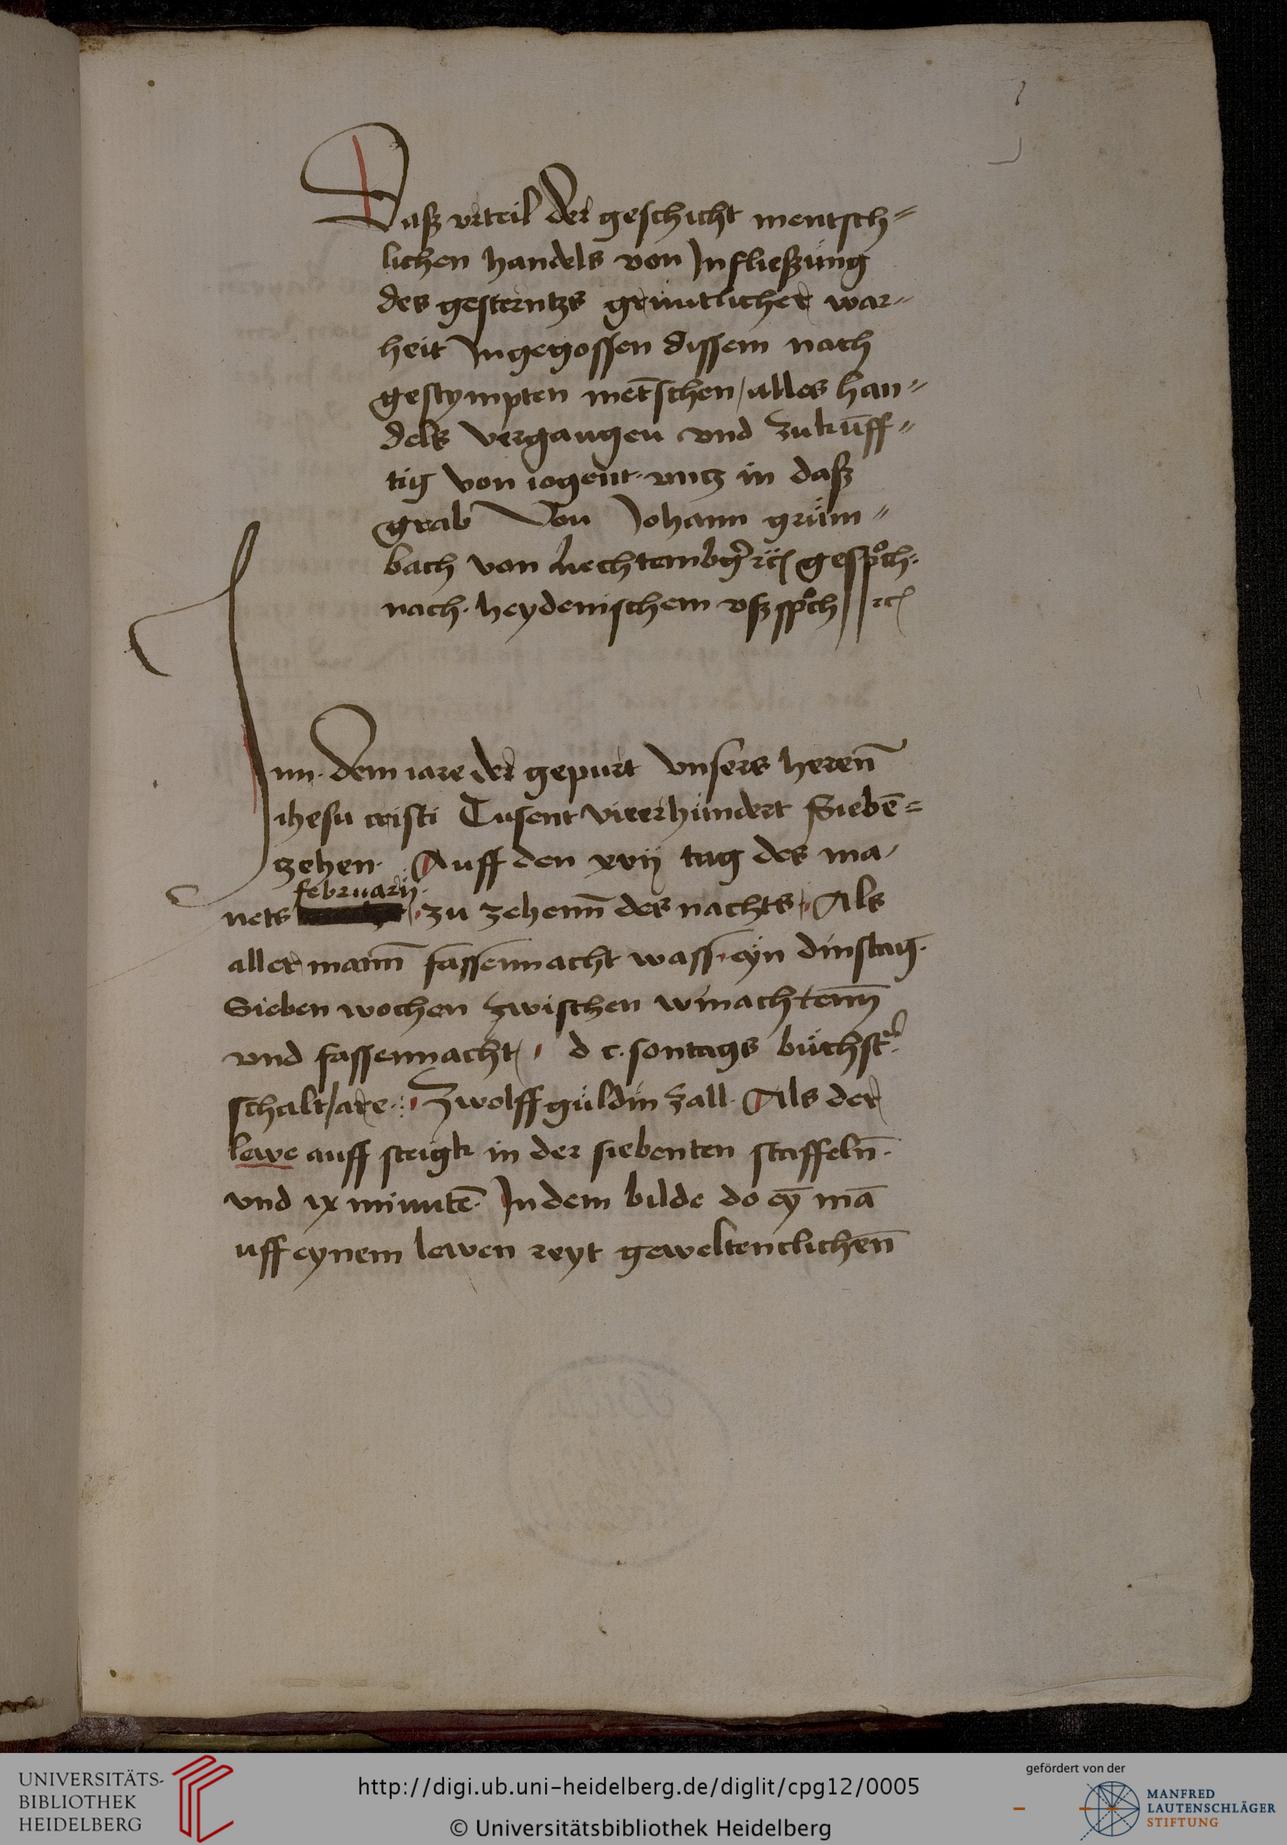 1
Daß vrteil der geschicht mentsch=
lichen handels von Jnfließung
des gesterntzs gruntlicher war=
heit Jngegossen dissem nach
gestympten mētschen / alles han=
dels vergangen vnd zukūff=
tig von iogent vntz in daß
grab Von Johann grům=
bach von liechtembg̉ rc̃ gesproch
nach heydenischem vßsproch rc̃
Inn dem iare der gepurt vnsers herenn̄
ihesu cristi Tusent vierhundert Siebē=
zehen Auff den xvij tag des ma=
februarij
nets zu zehenn̄ des nachts Als
aller mann̄ fassennacht wass eyn dinstag
Sieben wochen zwischen winachtenn̄
vnd fassennacht d c sontags buchst
schalt jare zwolff guldin zall Als der
lewe auff steigk in der siebenten staffeln̄
vnd ix minutē Jn dem bilde do eȳ mā
uff eynem lewen reyt geweltenclichenn̄
UNIVERSITÄTS-
BIBLIOTHEK
HEIDELBERG
http://digi.ub.uni-heidelberg.de/diglit/cpg12/0005
© Universitätsbibliothek Heidelberg
gefördert von der
MANFRED
LAUTENSCHLÄGER
STIFTUNG